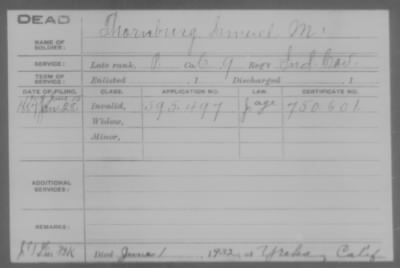 DEAD
NAME OF SOLDIER: Thornburg, Samuel M.
SERVICE: Late rank, P. Co. C, 9 Reg't Ind. Cav.
TERM OF SERVICE: Enlisted , 1 Discharged , 1
DATE OF FILING. CLASS. APPLICATION NO. LAW. CERTIFICATE NO.
Invalid, 595.497 750.601
Widow,
Minor,
ADDITIONAL SERVICES:
REMARKS:
Died 1922, at Yreka, Calif